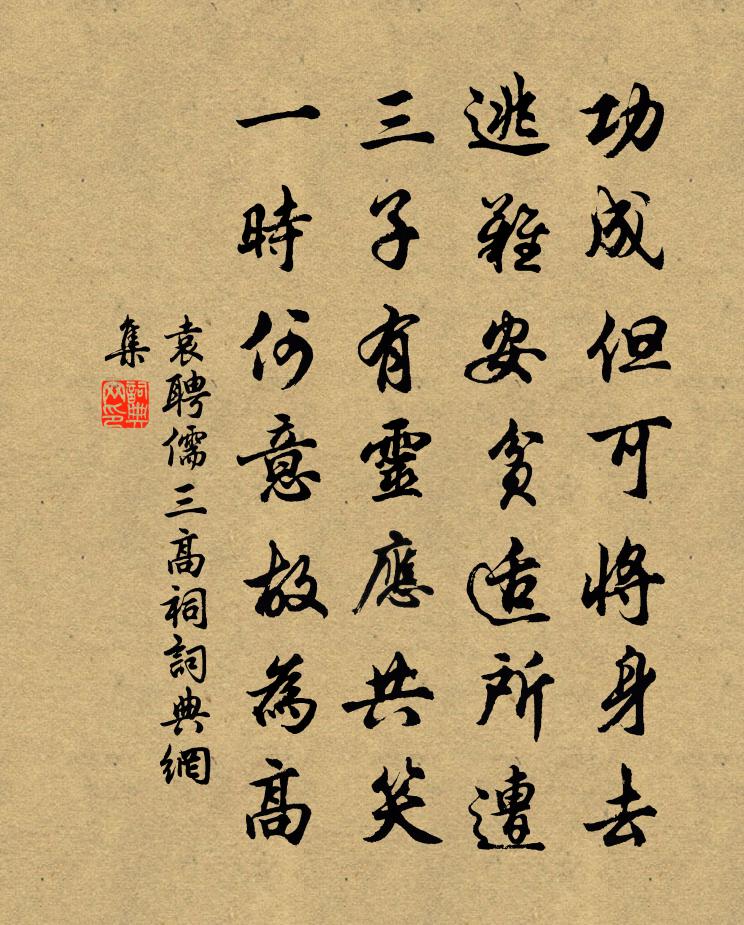 功成但可將身去
逃難安貧適所遭
三子有靈應共笑
一時何意故為高
袁聘儒三高祠詞典網
集
詞典網印